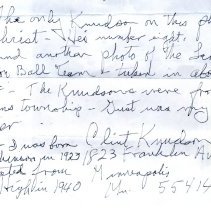 the only Knudson on this ph
Christ - He's number eight,
und another photo of the
or Ball Team - taken in abo
- The Knudsons were fro
ns township - Gust was my
er -
- I was born Clint Knudson
in 1923 1823 Franklin Av
from Minneapolis
in 1940 Mn 55414